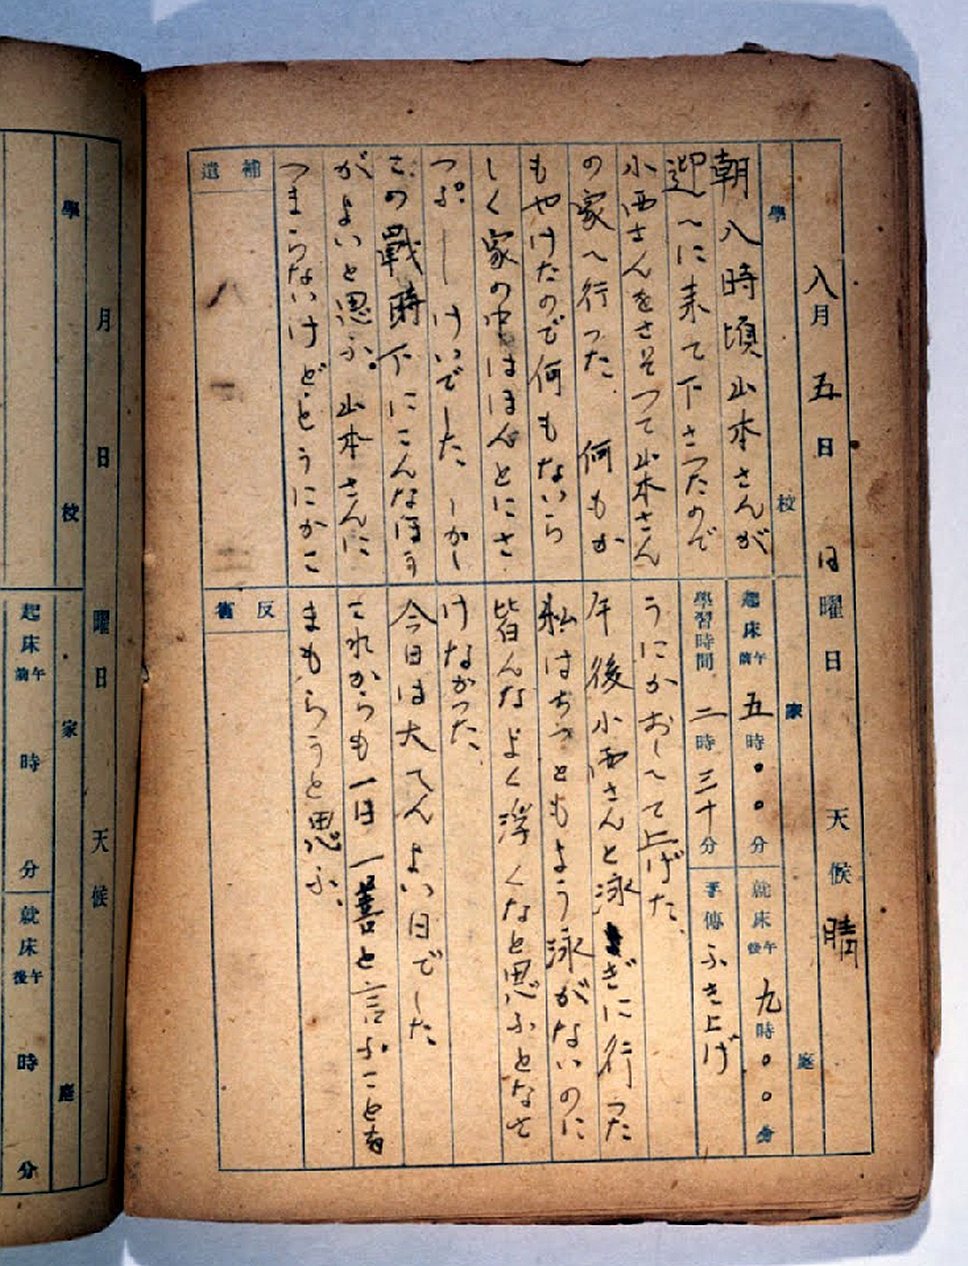 八月五日 日曜日 天候 晴
學校
朝八時頃山本さんが
迎へに来て下さつたので
小西さんをさそつて山本さん
の家へ行つた、何もか
もやけたので何もないら
しく家の中はほんとにさ
つぷーけいでした、しかし
この戰時下にこんなほう
がよいと思ふ。山本さんに
つまらないけどどうにかこ
補遺
家庭
起床 午前 五時〇〇分
就床 午後 九時〇〇分
學習時間 二時三十分
手傳 ふき上げ
うにかおしへて上げた、
午後小西さんと泳ぎに行つた
私はちつともよう泳がないのに
皆んなよく浮くなと思ふとなさ
けなかつた、
今日は大へんよい日でした
これからも一日一善と言ふことを
まもらうと思ふ、
反省
月 日 曜日 天候
學校
家庭
起床 午前 時 分
就床 午後 時 分